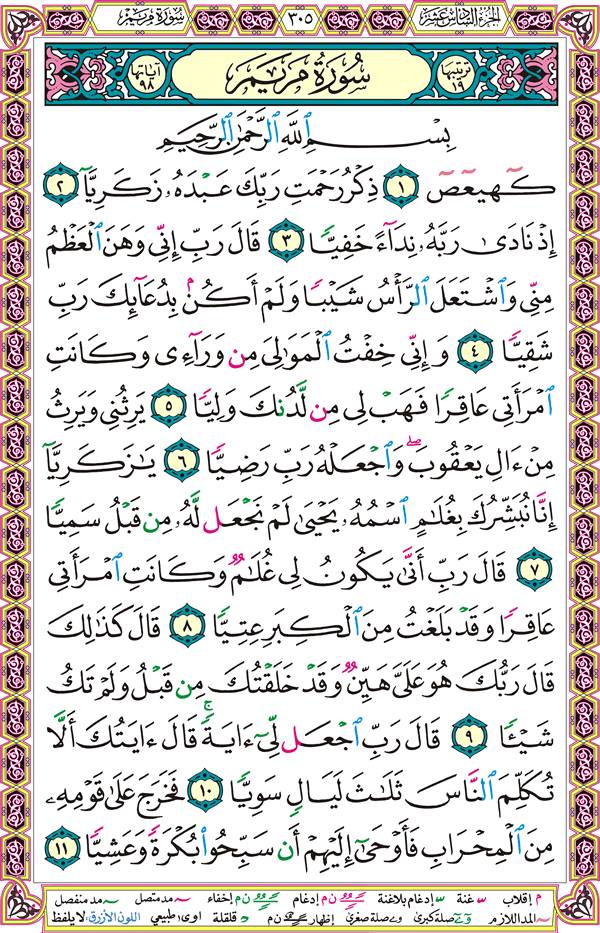 الجزء السادس عشر
٣٠٥
سورة مريم
ترتيبها ١٩
سُورَةُ مَرْيَمَ
آياتها ٩٨
بِسْمِ ٱللَّهِ ٱلرَّحْمَٰنِ ٱلرَّحِيمِ
كٓهيعٓصٓ ١ ذِكْرُ رَحْمَتِ رَبِّكَ عَبْدَهُۥ زَكَرِيَّآ ٢
إِذْ نَادَىٰ رَبَّهُۥ نِدَآءً خَفِيًّا ٣ قَالَ رَبِّ إِنِّي وَهَنَ ٱلْعَظْمُ
مِنِّي وَٱشْتَعَلَ ٱلرَّأْسُ شَيْبًا وَلَمْ أَكُنۢ بِدُعَآئِكَ رَبِّ
شَقِيًّا ٤ وَإِنِّي خِفْتُ ٱلْمَوَٰلِيَ مِن وَرَآءِي وَكَانَتِ
ٱمْرَأَتِي عَاقِرًا فَهَبْ لِي مِن لَّدُنكَ وَلِيًّا ٥ يَرِثُنِي وَيَرِثُ
مِنْ ءَالِ يَعْقُوبَۖ وَٱجْعَلْهُ رَبِّ رَضِيًّا ٦ يَٰزَكَرِيَّآ
إِنَّا نُبَشِّرُكَ بِغُلَٰمٍ ٱسْمُهُۥ يَحْيَىٰ لَمْ نَجْعَل لَّهُۥ مِن قَبْلُ سَمِيًّا
٧ قَالَ رَبِّ أَنَّىٰ يَكُونُ لِي غُلَٰمٌ وَكَانَتِ ٱمْرَأَتِي
عَاقِرًا وَقَدْ بَلَغْتُ مِنَ ٱلْكِبَرِ عِتِيًّا ٨ قَالَ كَذَٰلِكَ
قَالَ رَبُّكَ هُوَ عَلَيَّ هَيِّنٌ وَقَدْ خَلَقْتُكَ مِن قَبْلُ وَلَمْ تَكُ
شَيْـًٔا ٩ قَالَ رَبِّ ٱجْعَل لِّيٓ ءَايَةًۚ قَالَ ءَايَتُكَ أَلَّا
تُكَلِّمَ ٱلنَّاسَ ثَلَٰثَ لَيَالٍ سَوِيًّا ١٠ فَخَرَجَ عَلَىٰ قَوْمِهِۦ
مِنَ ٱلْمِحْرَابِ فَأَوْحَىٰٓ إِلَيْهِمْ أَن سَبِّحُوا۟ بُكْرَةً وَعَشِيًّا ١١
م إقلاب غنة إدغام بلاغنة ن م إدغام ن م إخفاء مد متصل مد منفصل
المد اللازم صلة كبرى صلة صغرى إظهار ن م قلقلة اوى طبيعي اللون الأزرق لا يلفظ